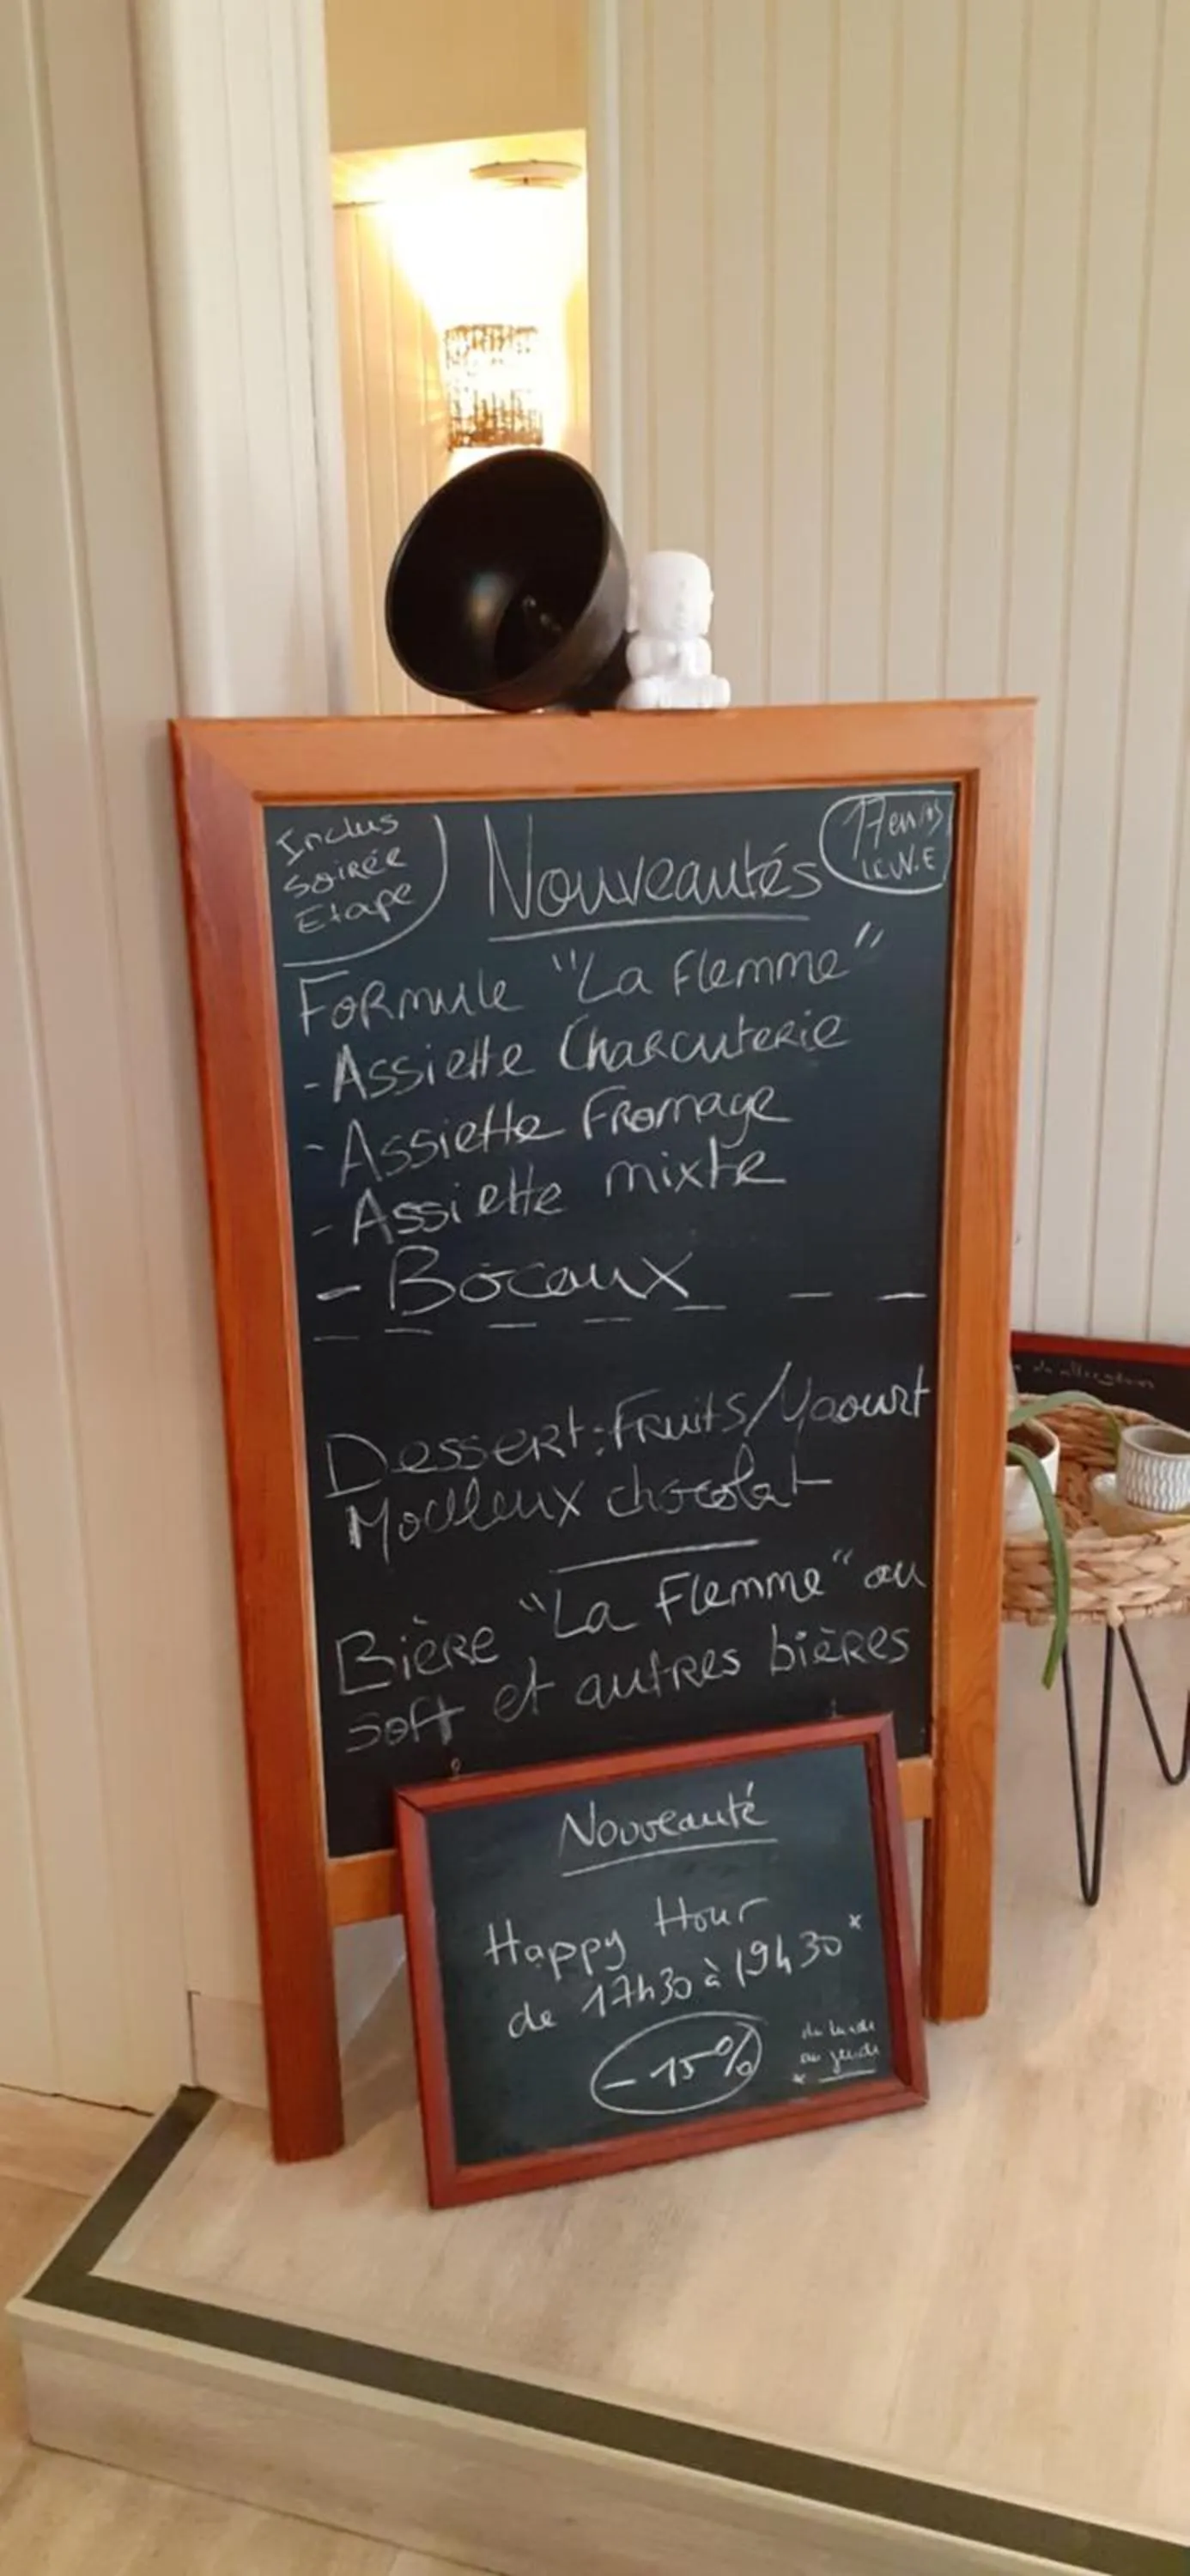 Inclus
Soirée
Etape
Nouveautés
17 euros
le W.E
Formule "La Flemme"
- Assiette Charcuterie
- Assiette Fromage
- Assiette mixte
- Bocaux
Dessert: Fruits/Yaourt
Moelleux chocolat
Bière "La Flemme" ou
soft et autres bières
Nouveauté
Happy Hour
de 17h30 à 19h30*
-15%
du lundi
au jeudi
*